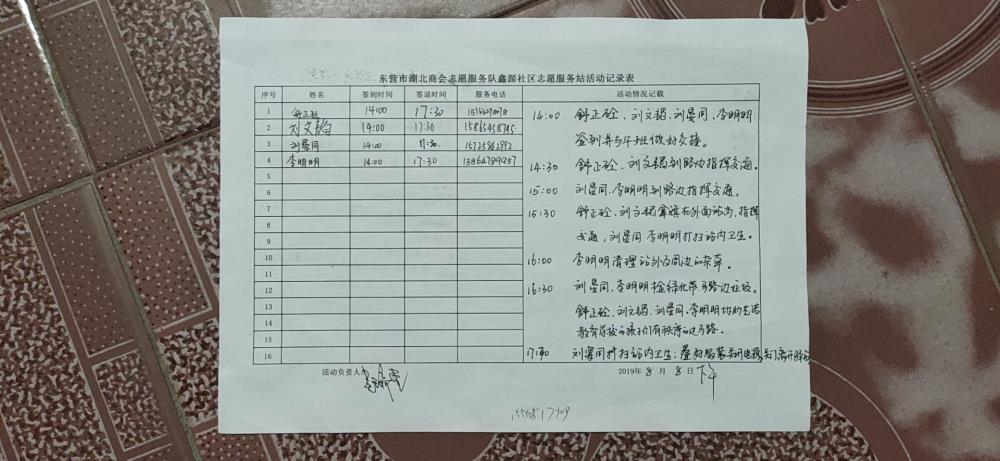 东营市湖北商会志愿服务队鑫源社区志愿服务站活动记录表
序号 姓名 签到时间 签退时间 服务电话 活动情况记载
1 舒正砼 14:00 17:30
2 刘文韬 14:00 17:30
3 刘晏同 14:00 17:30
4 李明明 14:00 17:30 13864789957
5
6
7
8
9
10
11
12
13
14
15
16
14:00 舒正砼、刘文韬、刘晏同、李明明
签到并与午班做好交接。
14:30 舒正砼、刘文韬到路边指挥交通。
15:00 刘晏同、李明明到路边指挥交通。
15:30 舒正砼、刘文韬拿旗在外面站岗,指挥
交通,刘晏同 李明明打扫站内卫生。
16:00 李明明清理站外及周边的杂草。
16:30 刘晏同、李明明捡绿化带马路边垃圾。
舒正砼、刘文韬、刘晏同、李明明协助艺诺
教育学校的孩子们有秩序的过马路。
17:30 刘晏同打扫站内卫生;
活动负责人
2019年 8 月 8 日 下午